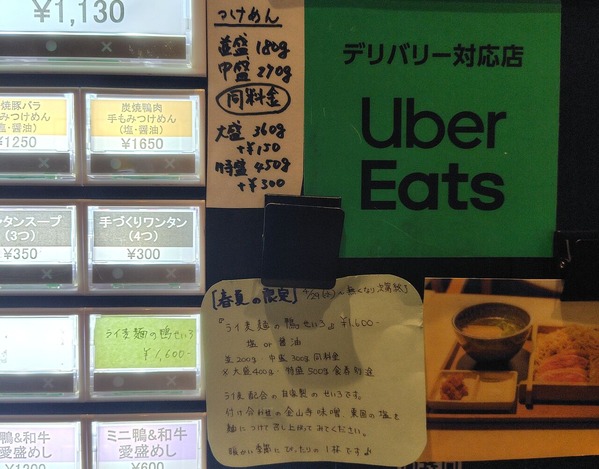 ¥1,130
焼豚バラ
みつけめん
塩・醤油)
¥1250
炭焼鴨肉
手もみつけめん
(塩・醤油)
¥1650
ンタンスープ
(3つ)
¥350
手づくりワンタン
(4つ)
¥300
ライ麦麺の鴨せいろ
¥1,600-
鴨&和牛
愛盛めし
ミニ鴨&和牛
愛盛めし
¥600
つけめん
並盛 180g
中盛 270g
同料金
大盛 360g
+¥150
特盛 450g
+¥300
デリバリー対応店
Uber
Eats
【春夏の限定】 4/29(火)〜無くなり次第終了
『ライ麦麺の鴨せいろ』 ¥1,600-
塩 or 醤油
並200g 中盛300g 同料金
※大盛400g・特盛500g
ライ麦配合の自家製のせいろです。
付け合わせの金山寺味噌、
麺につけて召し上がってみてください。
暖かい季節にぴったりの1杯です♪